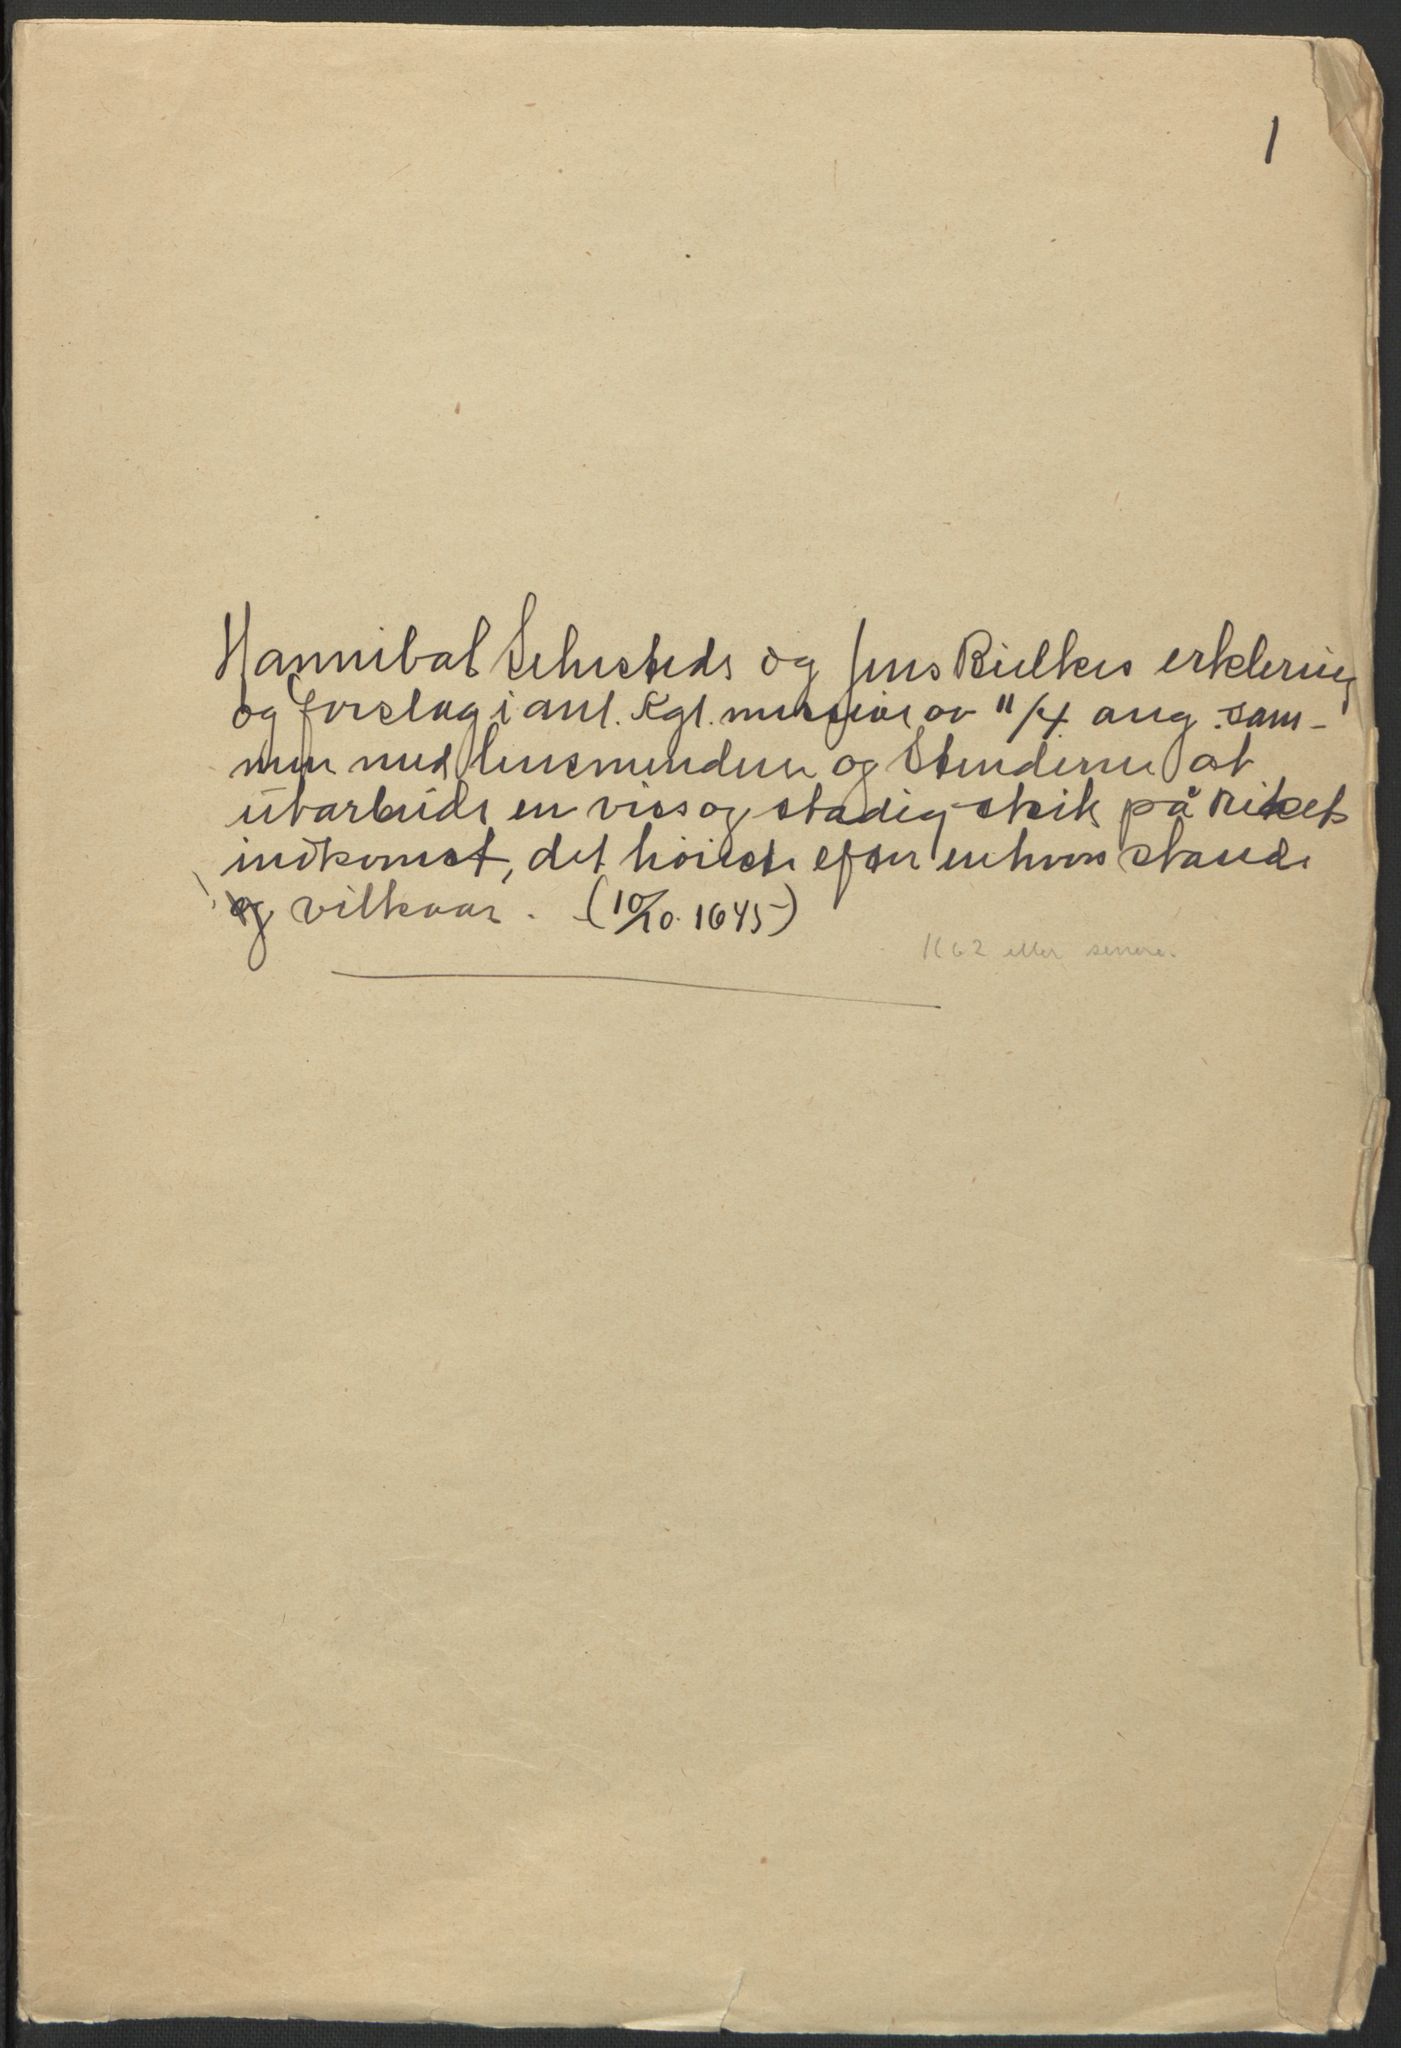 1
Hannibal Sehesteds og Jens Bielkes erklering
og forslag i anl. Kgl. missive av 11/4 ang. sam-
men med lensmendene og Stenderne at
utarbeide en viss og stadig skik på rikets
indkomst, det høieste efter enhvers stands
og vilkaar. (10/10. 1645)
1662 eller senere.